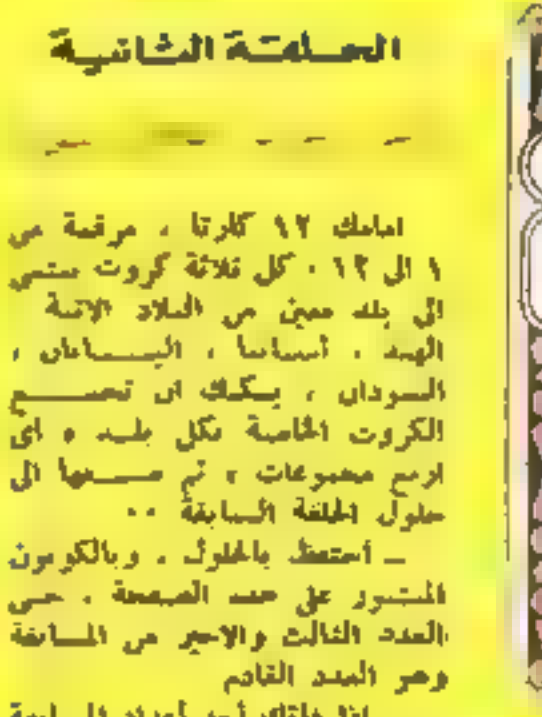 الحلقة الثانية
امامك ١٢ كارتا ، مرقمة من
١ الى ١٢ ، كل ثلاثة كروت ينتمي
الى بلد معين من البلاد الاتية
الهند ، أسبانيا ، اليابان ،
السودان ، يمكنك ان تجمع
الكروت الخاصة بكل بلد « اى
اربع مجموعات » ثم ضمها الى
حلول الحلقة السابقة ..
ـ احتفظ بالحلول ، وبالكوبون
المنشور على هذه الصفحة ، حتى
العدد الثالث والاخير من المسابقة
وهو العدد القادم